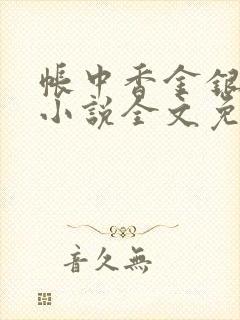 帳中香金銀
小說全文免
音久無